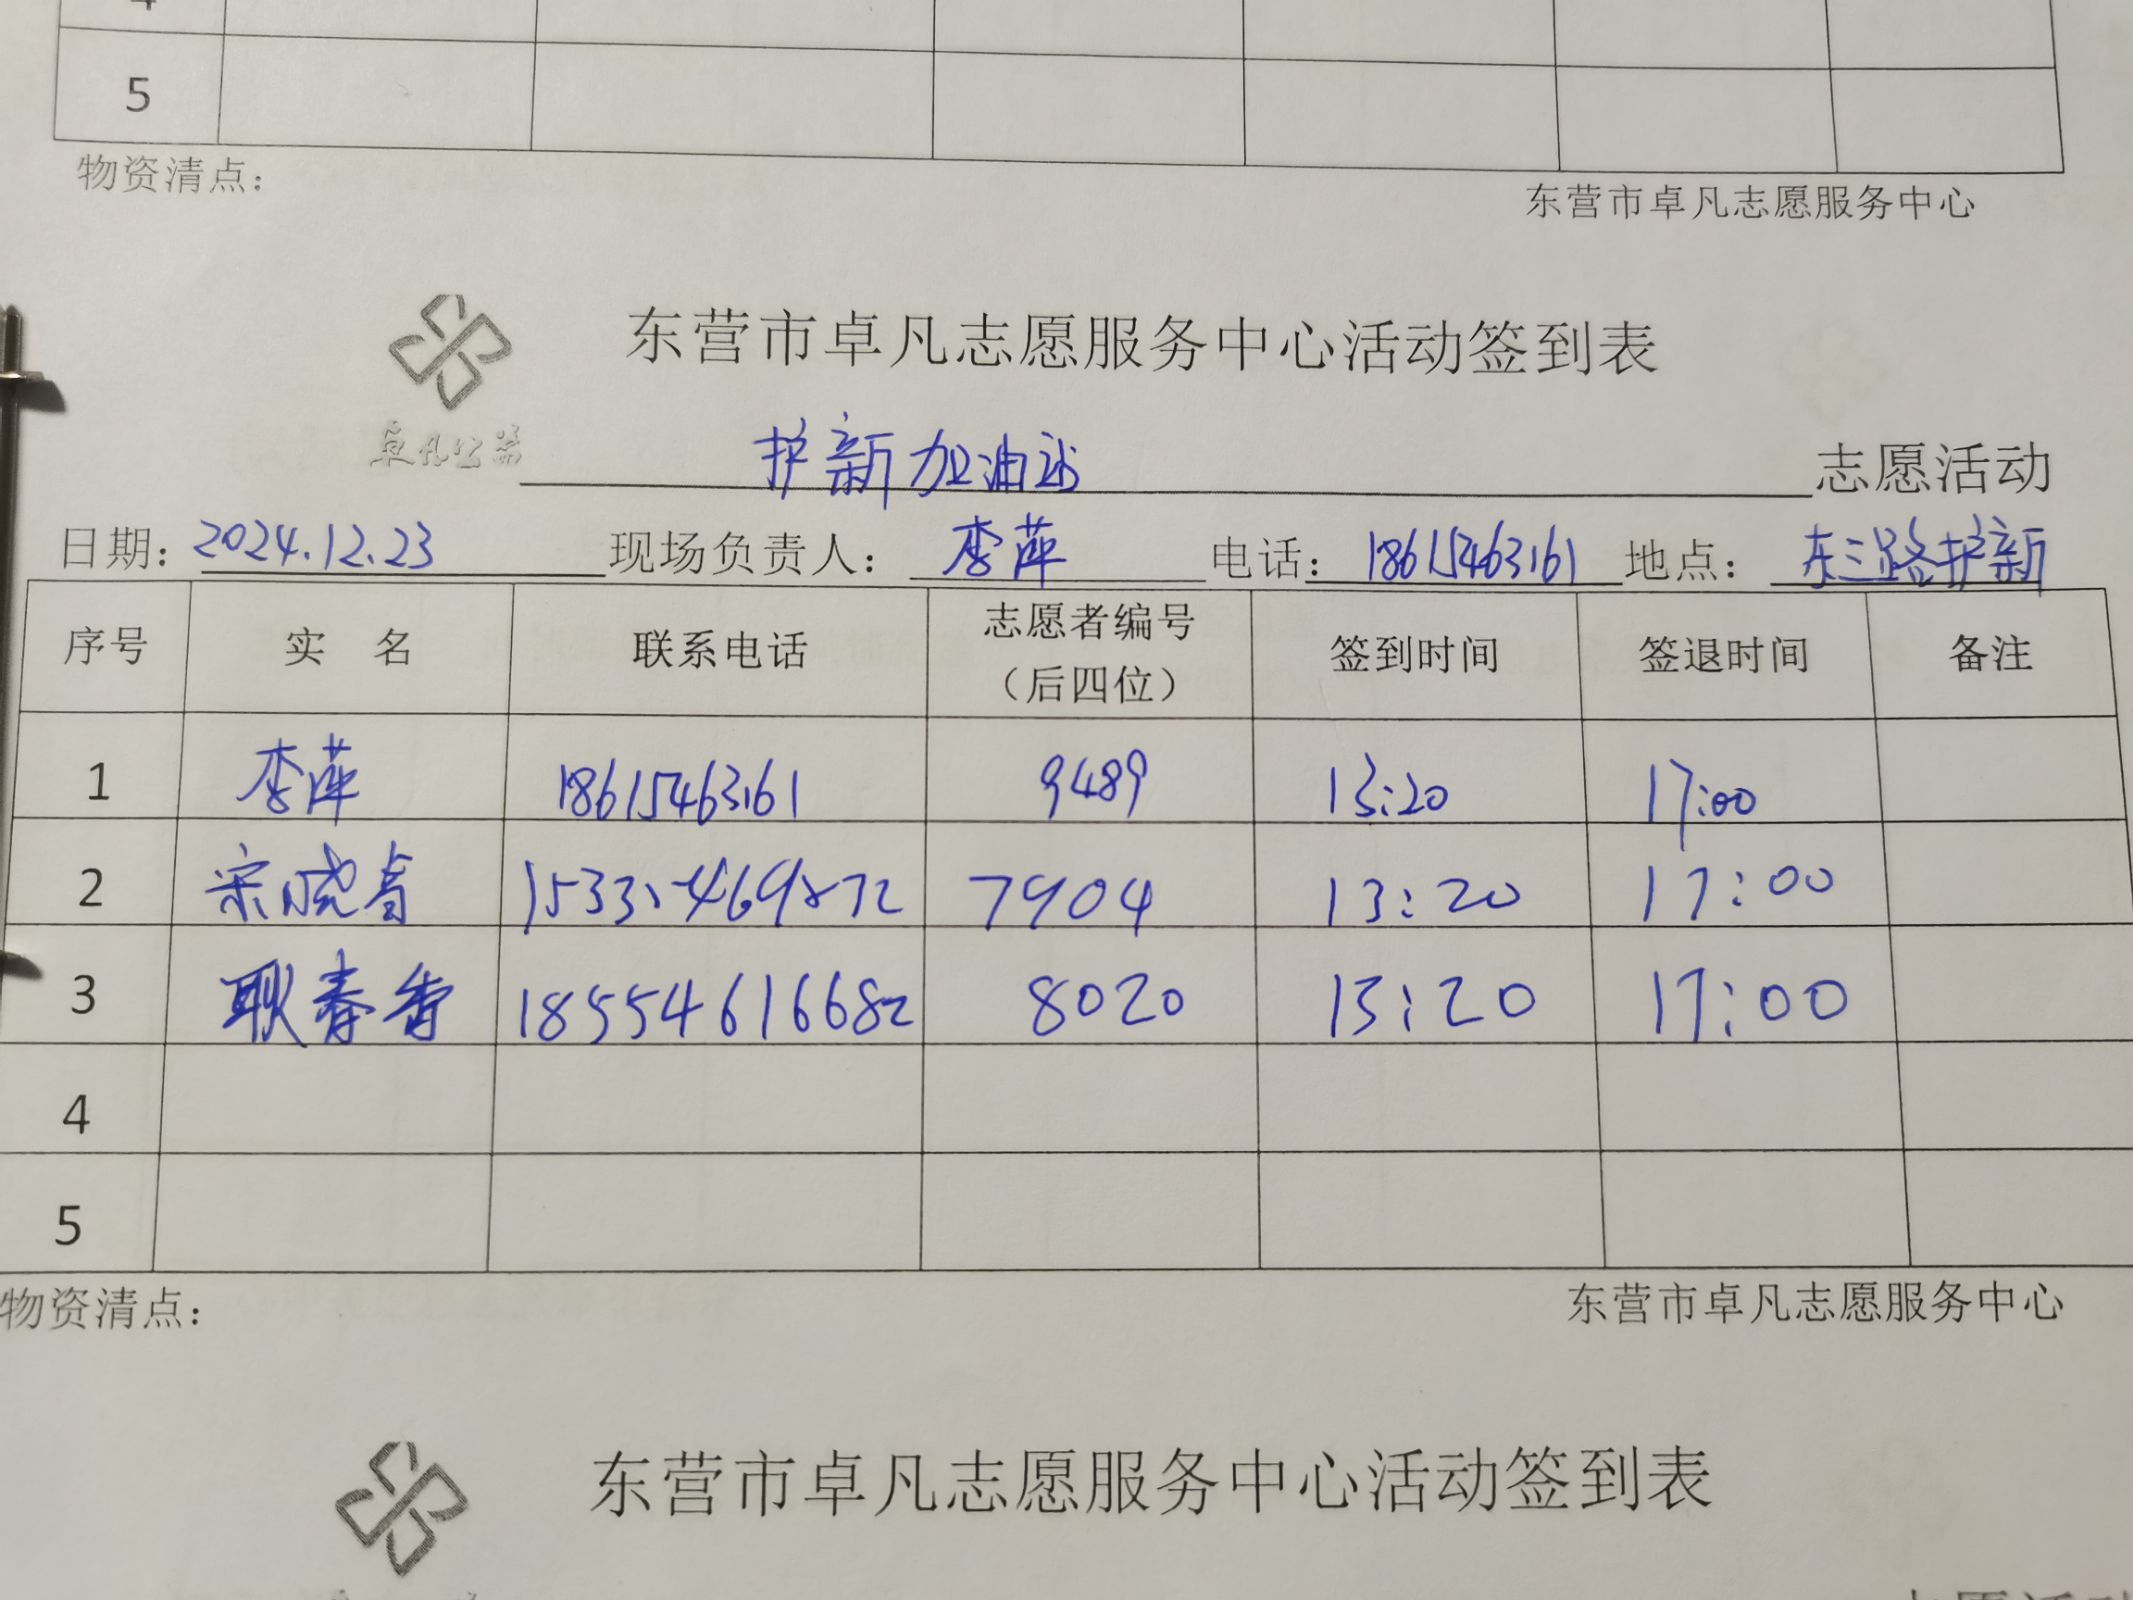 4
5
物资清点：
东营市卓凡志愿服务中心
东营市卓凡志愿服务中心活动签到表
卓凡公益
护新加油站 志愿活动
日期：2024.12.23 现场负责人：李萍 电话：18615463161 地点：东三路护新
序号 实 名 联系电话 志愿者编号（后四位） 签到时间 签退时间 备注
1 李萍 18615463161 9489 13:20 17:00
2 宋晓育 7904 13:20 17:00
3 耿春香 18554616682 8020 13:20 17:00
4
5
物资清点：
东营市卓凡志愿服务中心
东营市卓凡志愿服务中心活动签到表
志愿活动